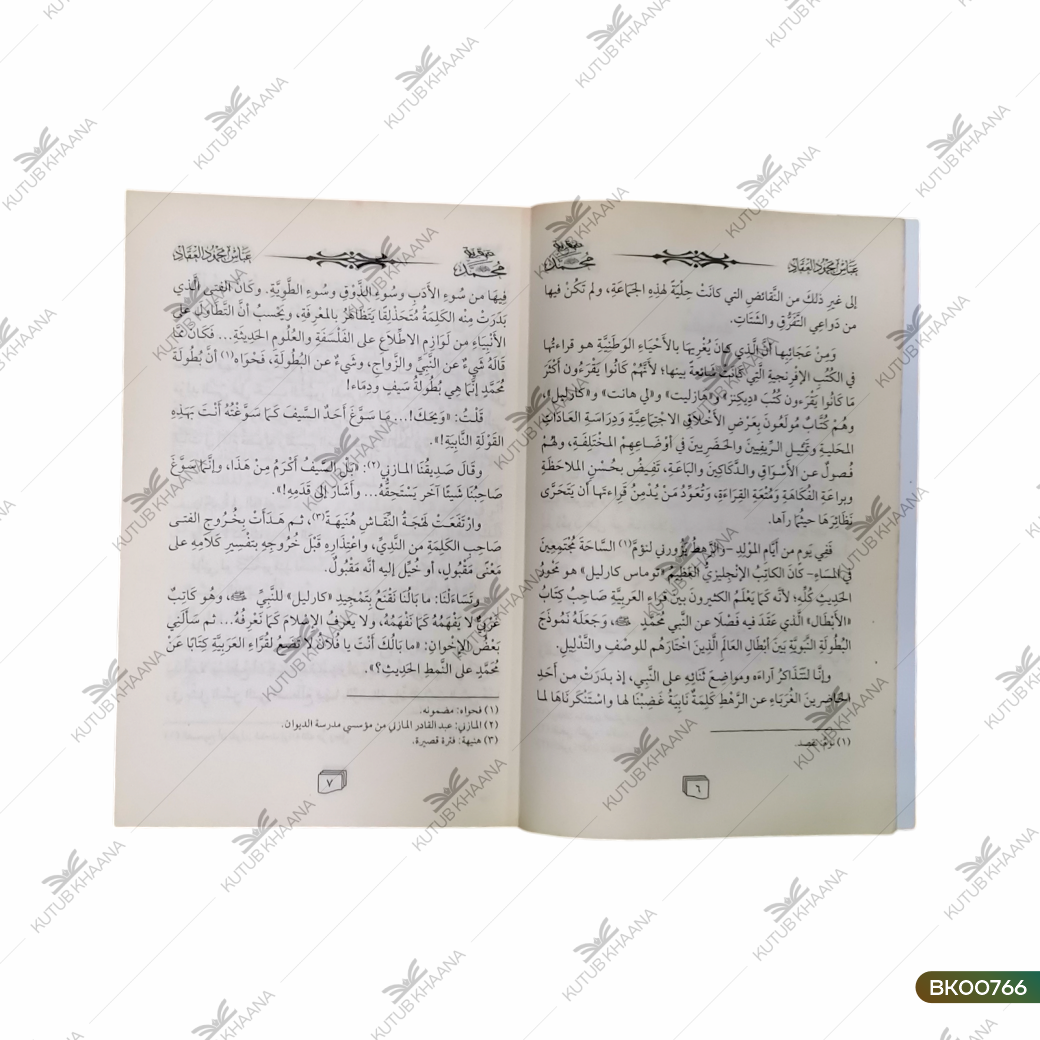 عبقرية محمد ﷺ
عباس محمود العقاد
إلى غير ذلكَ من النَّقائضِ التي كانَتْ حِلْيَةً لهذِهِ الجَمَاعَةِ، ولم تَكُنْ فيها
من دَواعِي التَّفَرُّقِ والشَّتَاتِ.
وَمِنْ عَجَائِبِها أنَّ الَّذِي كانَ يُغْرِيهَا بالأَحْيَاءِ الوَطَنِيَّةِ هو قراءتُها
في الكُتُبِ الإفْرِنجيةِ الَّتِي كَانَتْ شَائعةً بينها؛ لأنَّهُمْ كَانُوا يَقْرَءُون أكْثَرَ
مَا كَانُوا يَقْرَءون كُتُبَ «دِيكِنز» و«هازليت» و«لي هانت» و«كارليل»،
وهُمْ كُتَّابٌ مُولَعُونَ بِعَرْضِ الأَخْلَاقِ الاجْتِمَاعِيَّةِ وَدِرَاسَةِ العَادَاتِ
المَحَليةِ وتَمْثِيلِ الرِّيفيينَ والحَضَرِيينَ في أوْضَاعِهِمْ المُخْتَلِفَةِ، ولهُمْ
فُصولٌ عن الأسْوَاقِ والدَّكَاكِينِ والبَاعَةِ، تَفِيضُ بِحُسْنِ المُلَاحَظَةِ
وبراعَةِ الفُكَاهَةِ ومُتْعَةِ القِرَاءَةِ، وتُعَوِّدُ مَنْ يُدْمِنُ قِرَاءتَها أن يَتَحَرَّى
نَظَائِرَهَا حيثُمَا رآها.
فَفِي يَومٍ من أَيَّامِ المَوْلِدِ -والرَّهطُ يَزُورُني لنَؤُمَّ(١) السَّاحَةَ مُجْتَمِعِينَ
في المَسَاءِ- كانَ الكاتِبُ الإنْجِليزيُّ العَظِيمُ «توماس كارليل» هو مَحْوَرَ
الحَدِيثِ كُلِّهِ؛ لأنَّه كَمَا يَعْلَمُ الكثيرونَ بينَ قُراءِ العَرَبيَّةِ صَاحِبُ كِتَابِ
«الأَبْطَالِ» الَّذي عَقَدَ فيه فَصْلًا عن النَّبيِّ مُحَمَّدٍ ﷺ، وَجَعَلَهُ نَمُوذَجَ
البُطُولَةِ النَّبويَّةِ بَيْنَ أبْطَالِ العَالَمِ الَّذِينَ اخْتَارَهُم للوصْفِ والتَّدْليلِ.
وإنَّا لنَتَذَاكَرُ آراءَهُ ومواضِعَ ثَنَائِهِ على النَّبيِ، إذ بدَرَتْ من أَحَدِ
الحَاضِرينَ الغُرَباءِ عن الرَّهْطِ كَلِمَةٌ نَابِيَةٌ غَضِبْنَا لها واسْتَنْكَرنَاهَا لما
(١) نؤم: نقصد.
٦
عبقرية محمد ﷺ
عباس محمود العقاد
فِيهَا من سُوءِ الأدَبِ وسُوءِ الذَّوْقِ وسُوءِ الطَّوِيَّةِ. وكَانَ الفَتى الَّذي
بَدَرَتْ مِنْه الكَلِمَةُ مُتَحَذْلِقًا يَتَظَاهَرُ بالمعْرِفةِ، ويَحْسبُ أنَّ التَّطَاولَ على
الأَنْبِيَاءِ من لَوَازِمِ الاطِّلَاعِ على الفَلْسَفَةِ والعُلُومِ الحَدِيثةِ... فَكَانَ ممَّا
قَالَهُ شَيْءٌ عن النَّبيِّ والزَّواجِ، وشَيءٌ عن البُطُولَةِ، فَحْوَاه(١) أنَّ بُطُولةَ
مُحَمَّدٍ إنَّما هِي بُطُولَةُ سَيفٍ ودِمَاء!
قُلتُ: «وَيْحَكَ!... مَا سَوَّغَ أَحَدٌ السَّيفَ كَمَا سَوَّغْتَهُ أَنْتَ بَهَذِهِ
القَوْلَةِ النَّابِيَةِ!».
وقَالَ صَدِيقُنَا المازني(٢): «بَلِ السَّيفُ أكْرَمُ مِنْ هَذَا، وإنَّما سَوَّغَ
صَاحِبُنَا شَيئًا آخر يَسْتَحِقُّهُ... وأشَارَ إلى قَدَمِهِ!».
وارْتَفَعَتْ لَهْجَةُ النِّقَاشِ هُنَيهَةً(٣)، ثم هَدَأَتْ بِخُروجِ الفتى
صَاحِبِ الكَلِمَةِ من النَّدِيِّ، واعْتِذَارِهِ قَبْلَ خُرُوجِهِ بتفْسِيرِ كَلَامِهِ على
مَعْنًى مَقْبُولٍ، أو خُيِّلَ إليه أنَّه مَقْبُولٌ.
وتَسَاءلْنَا: ما بَالُنَا نَقْنَعُ بِتَمْجِيدِ «كارليل» للنَّبيِّ ﷺ، وهُو كَاتِبٌ
غَرْبيٌّ لا يَفْهَمُهُ كَمَا نَفْهَمُهُ، ولا يَعْرِفُ الإسْلَامَ كَمَا نَعْرِفُهُ... ثم سَأَلَني
بَعْضُ الإخْوانِ: «ما بَالُكَ أنْتَ يا فُلَان لا تَضَعُ لقُرَّاءِ العَرَبيَّةِ كِتَابًا عَنْ
مُحَمَّدٍ على النَّمطِ الحَدِيثِ؟».
(١) فحواه: مضمونه.
(٢) المازني: عبد القادر المازني من مؤسسي مدرسة الديوان.
(٣) هنيهة: فترة قصيرة.
٧
KUTUB KHAANA
BK00766